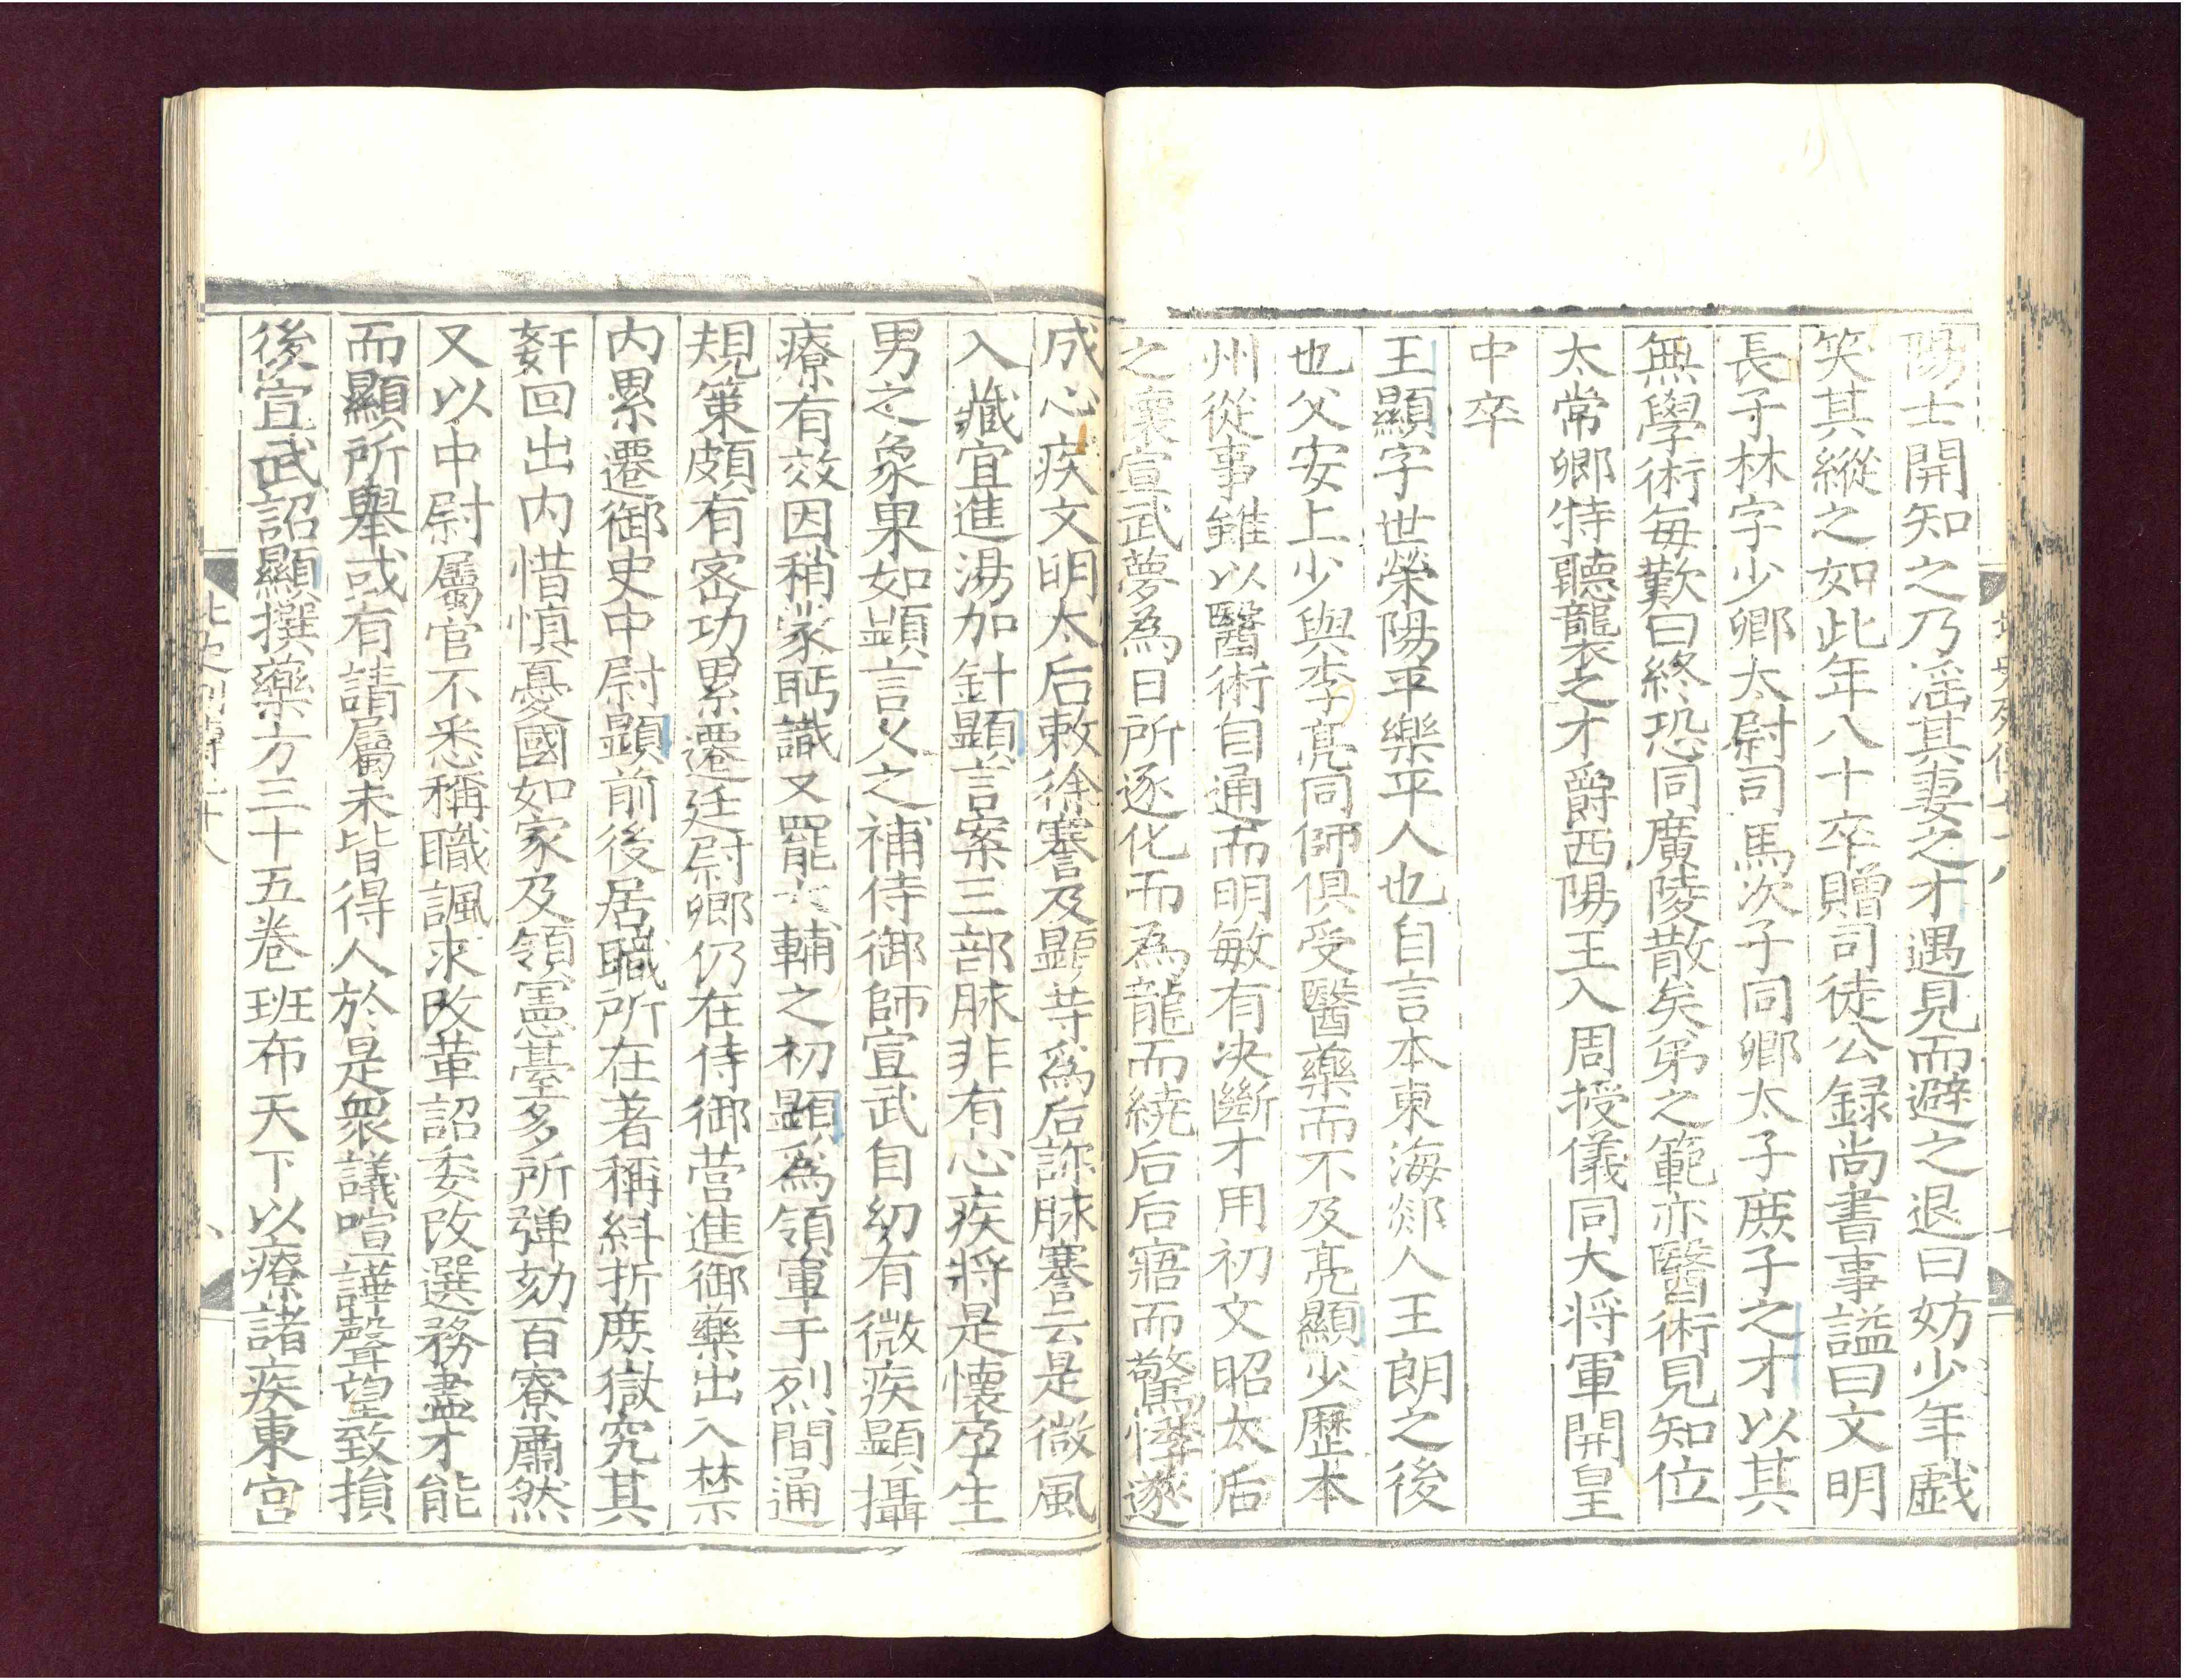 陽士開知之乃滛其妻之才遇見而避之退曰妨少年戯
笑其縱之如此年八十卒贈司徒公録尚書事謚曰文明
長子林字少卿太尉司馬次子同卿太子庶子之才以其
無學術每歎曰終恐同廣陵散矣弟之範亦醫術見知位
太常卿特聽襲之才爵西陽王入周授儀同大将軍開皇
中卒
王顯字世榮陽平樂平人也自言本東海郯人王朗之後
也父安上少與李亮同師俱受醫藥而不及亮顯少歷本
州從事雖以醫術自通而明敏有决斷才用初文昭太后
之懷宣武夢為日所逐化而為龍而繞后后寤而驚悸遂
成心疾文明太后敕徐謇及顯等為后診脉謇云是微風
入藏宜進湯加針顯言案三部脉非有心疾將是懷孕生
男之象果如顯言乆之補侍御師宣武自幼有微疾顯攝
療有效因稍蒙眄識又罷六輔之初顯為領軍于烈間通
規策頗有宻功累遷廷尉卿仍在侍御营進御藥出入禁
内累遷御史中尉顯前後居職所在著稱糾折庶獄究其
姧回出内惜慎憂國如家及領憲臺多所弹劾百寮肅然
又以中尉屬官不悉稱職諷求改革詔委改選務盡才能
而顯所舉或有請屬未皆得人於是衆議喧譁聲望致損
後宣武詔顯撰藥方三十五卷班布天下以療諸疾東宫
北史列傳七十八
八